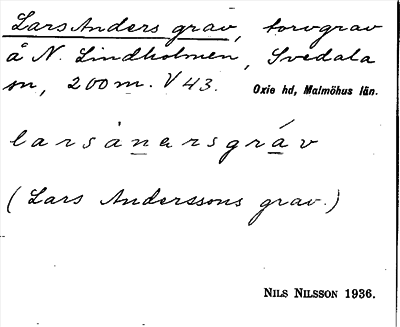 Lars Anders grav, torvgrav
å N. Lindholmen, Svedala
sn, 200 m. V 43. Oxie hd, Malmöhus län.
larsánarsgráv
(Lars Anderssons grav.)
NILS NILSSON 1936.